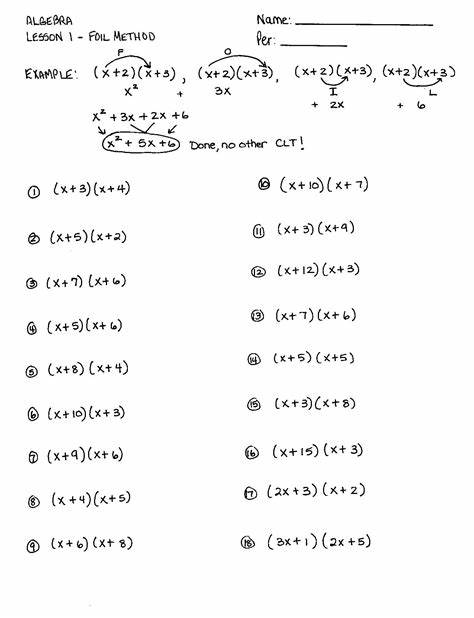 ALGEBRA
LESSON 1 - FOIL METHOD
Name:
Per:
F O
EXAMPLE: (x+2)(x+3), (x+2)(x+3), (x+2)(x+3), (x+2)(x+3)
I L
x² + 3x + 2x + 6
x² + 3x + 2x + 6
x² + 5x + 6 Done, no other CLT!
① (x+3)(x+4)
② (x+5)(x+2)
③ (x+7)(x+6)
④ (x+5)(x+6)
⑤ (x+8)(x+4)
⑥ (x+10)(x+3)
⑦ (x+9)(x+6)
⑧ (x+4)(x+5)
⑨ (x+6)(x+8)
⑩ (x+10)(x+7)
⑪ (x+3)(x+9)
⑫ (x+12)(x+3)
⑬ (x+7)(x+6)
⑭ (x+5)(x+5)
⑮ (x+3)(x+8)
⑯ (x+15)(x+3)
⑰ (2x+3)(x+2)
⑱ (3x+1)(2x+5)